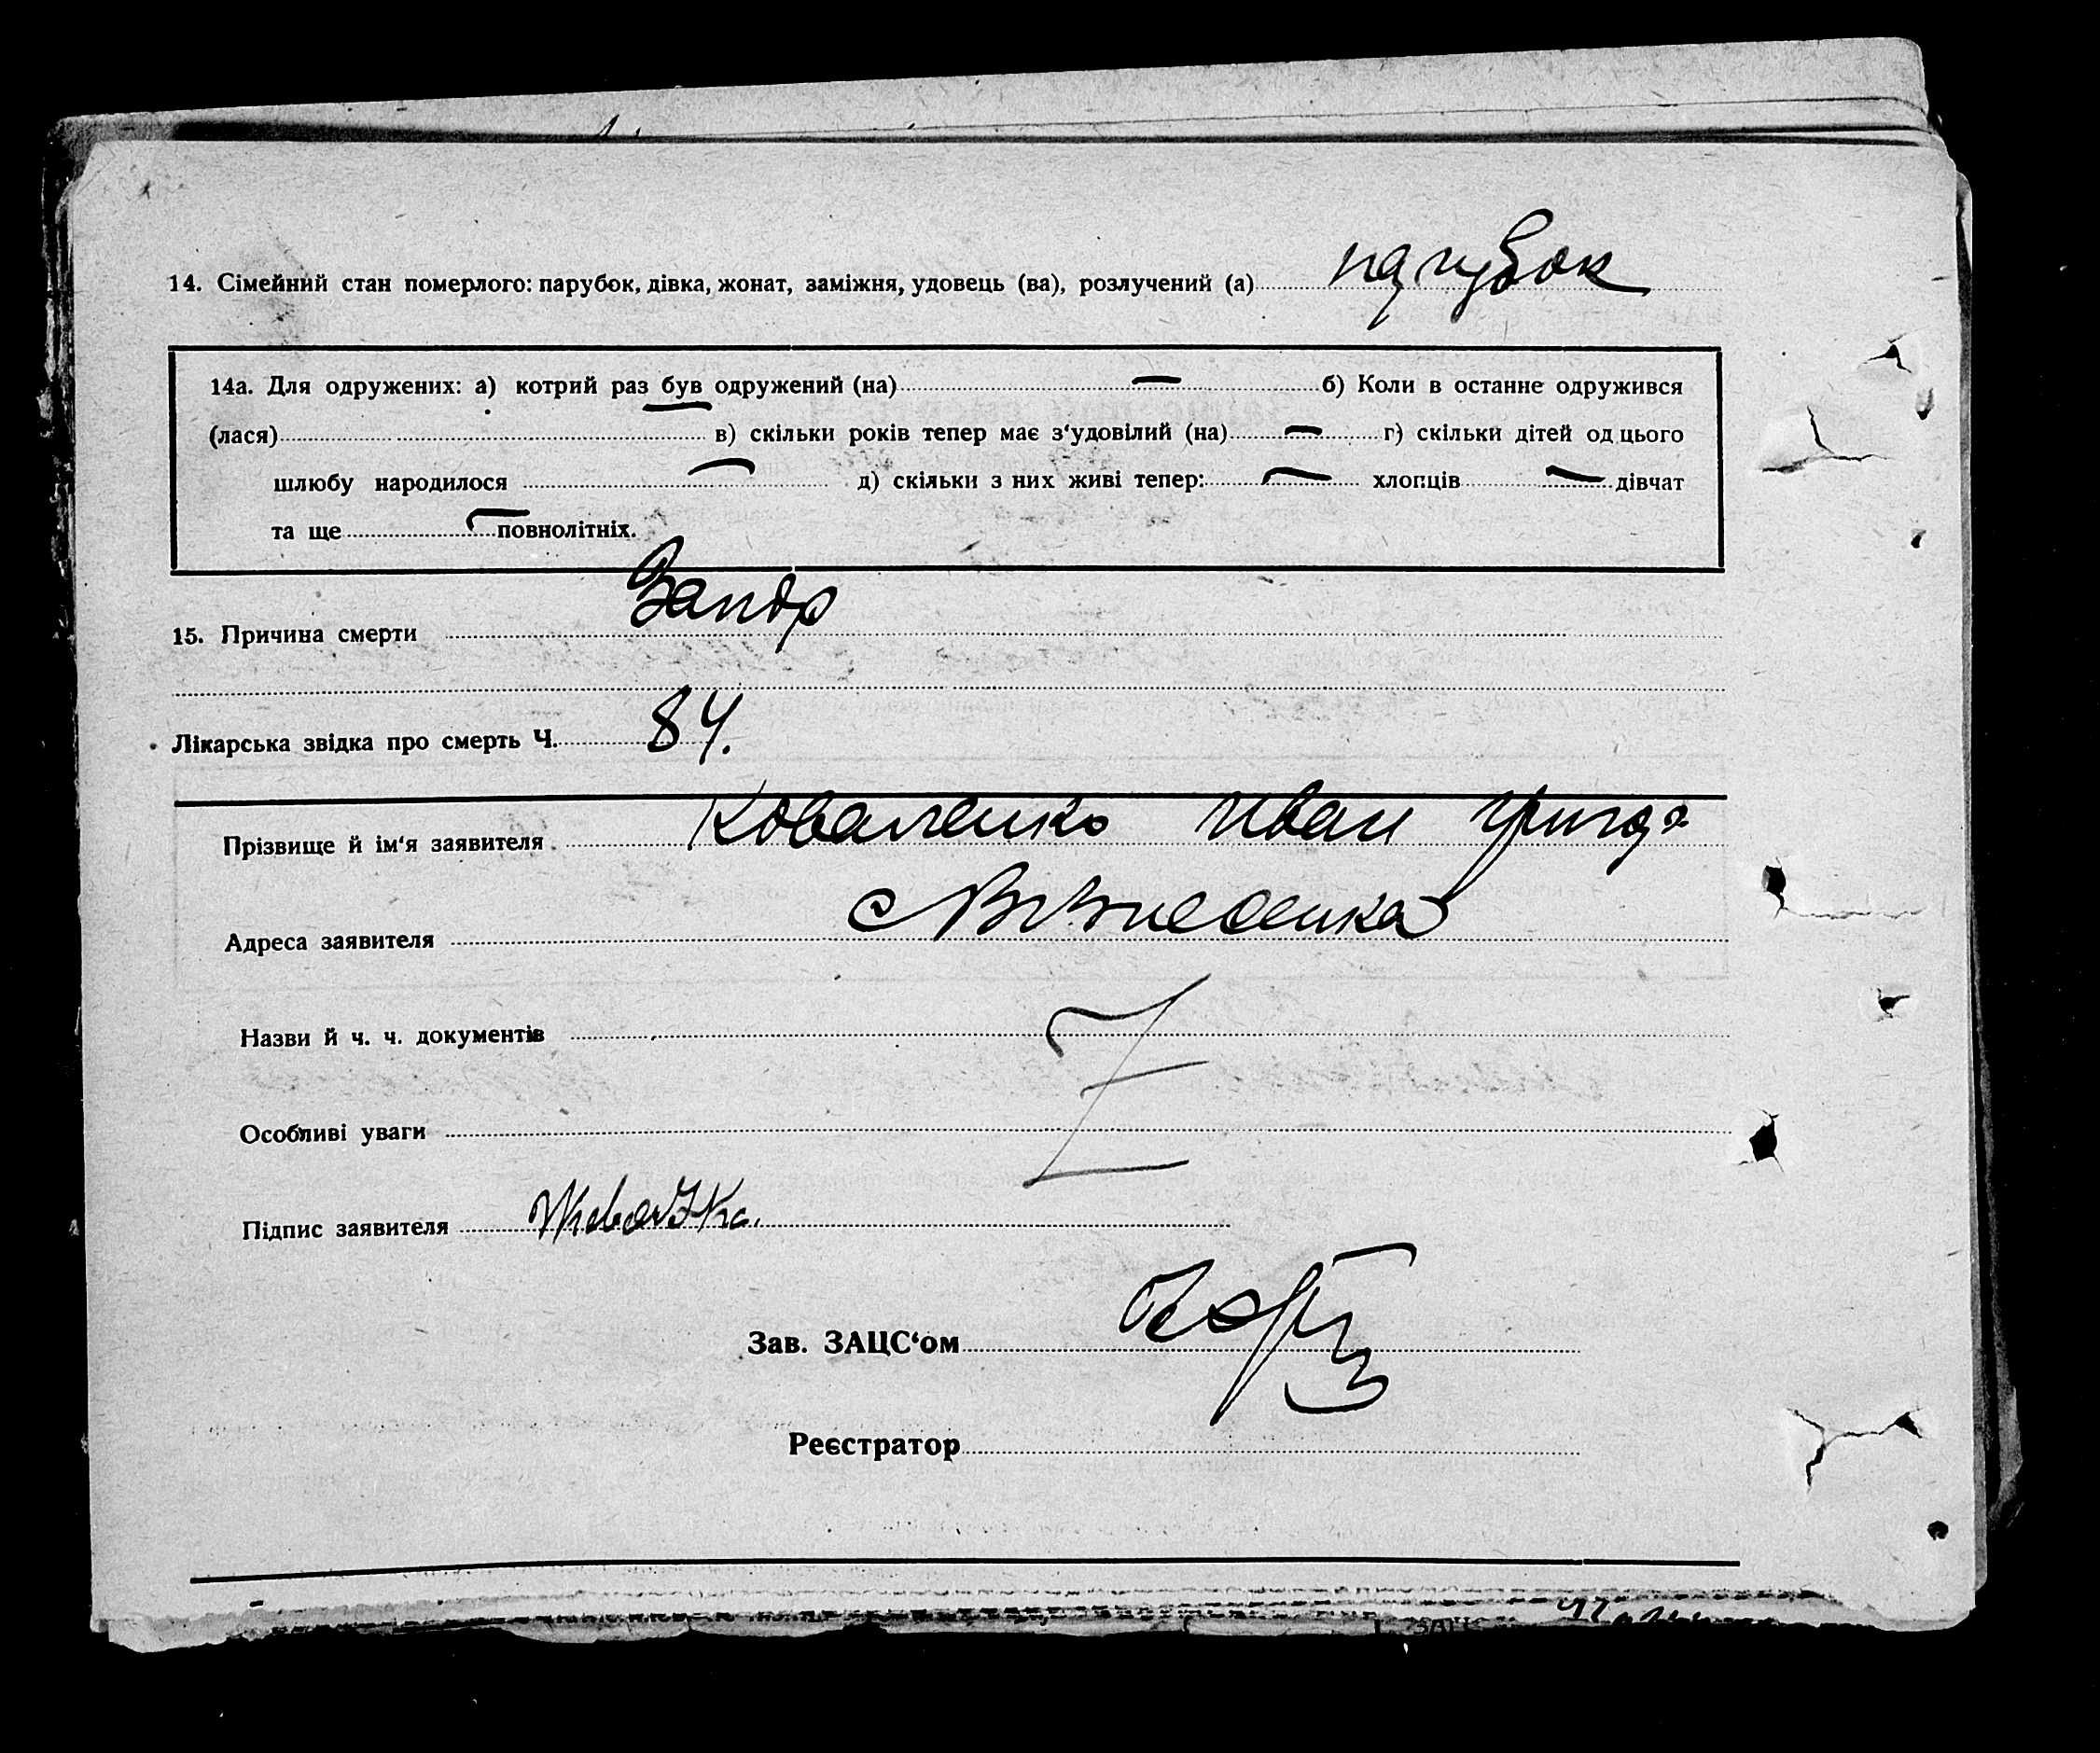 14. Сімейний стан померлого: парубок, дівка, жонат, заміжня, удовець (ва), розлучений (а) парубок
14а. Для одружених: а) котрий раз був одружений (на) — б) Коли в останнє одружився
(лася) в) скільки років тепер має з'удовілий (на) — г) скільки дітей од цього
шлюбу народилося — д) скільки з них живі тепер: — хлопців — дівчат
та ще — повнолітніх.
15. Причина смерти
Лікарська звідка про смерть Ч. 84.
Прізвище й ім'я заявителя Коваленко Иван
Адреса заявителя
Назви й ч. ч. документів
Особливі уваги
Підпис заявителя
Зав. ЗАЦС'ом
Реєстратор